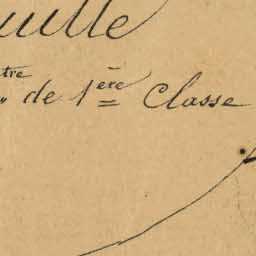 uille
tre „ de 1ère Classe